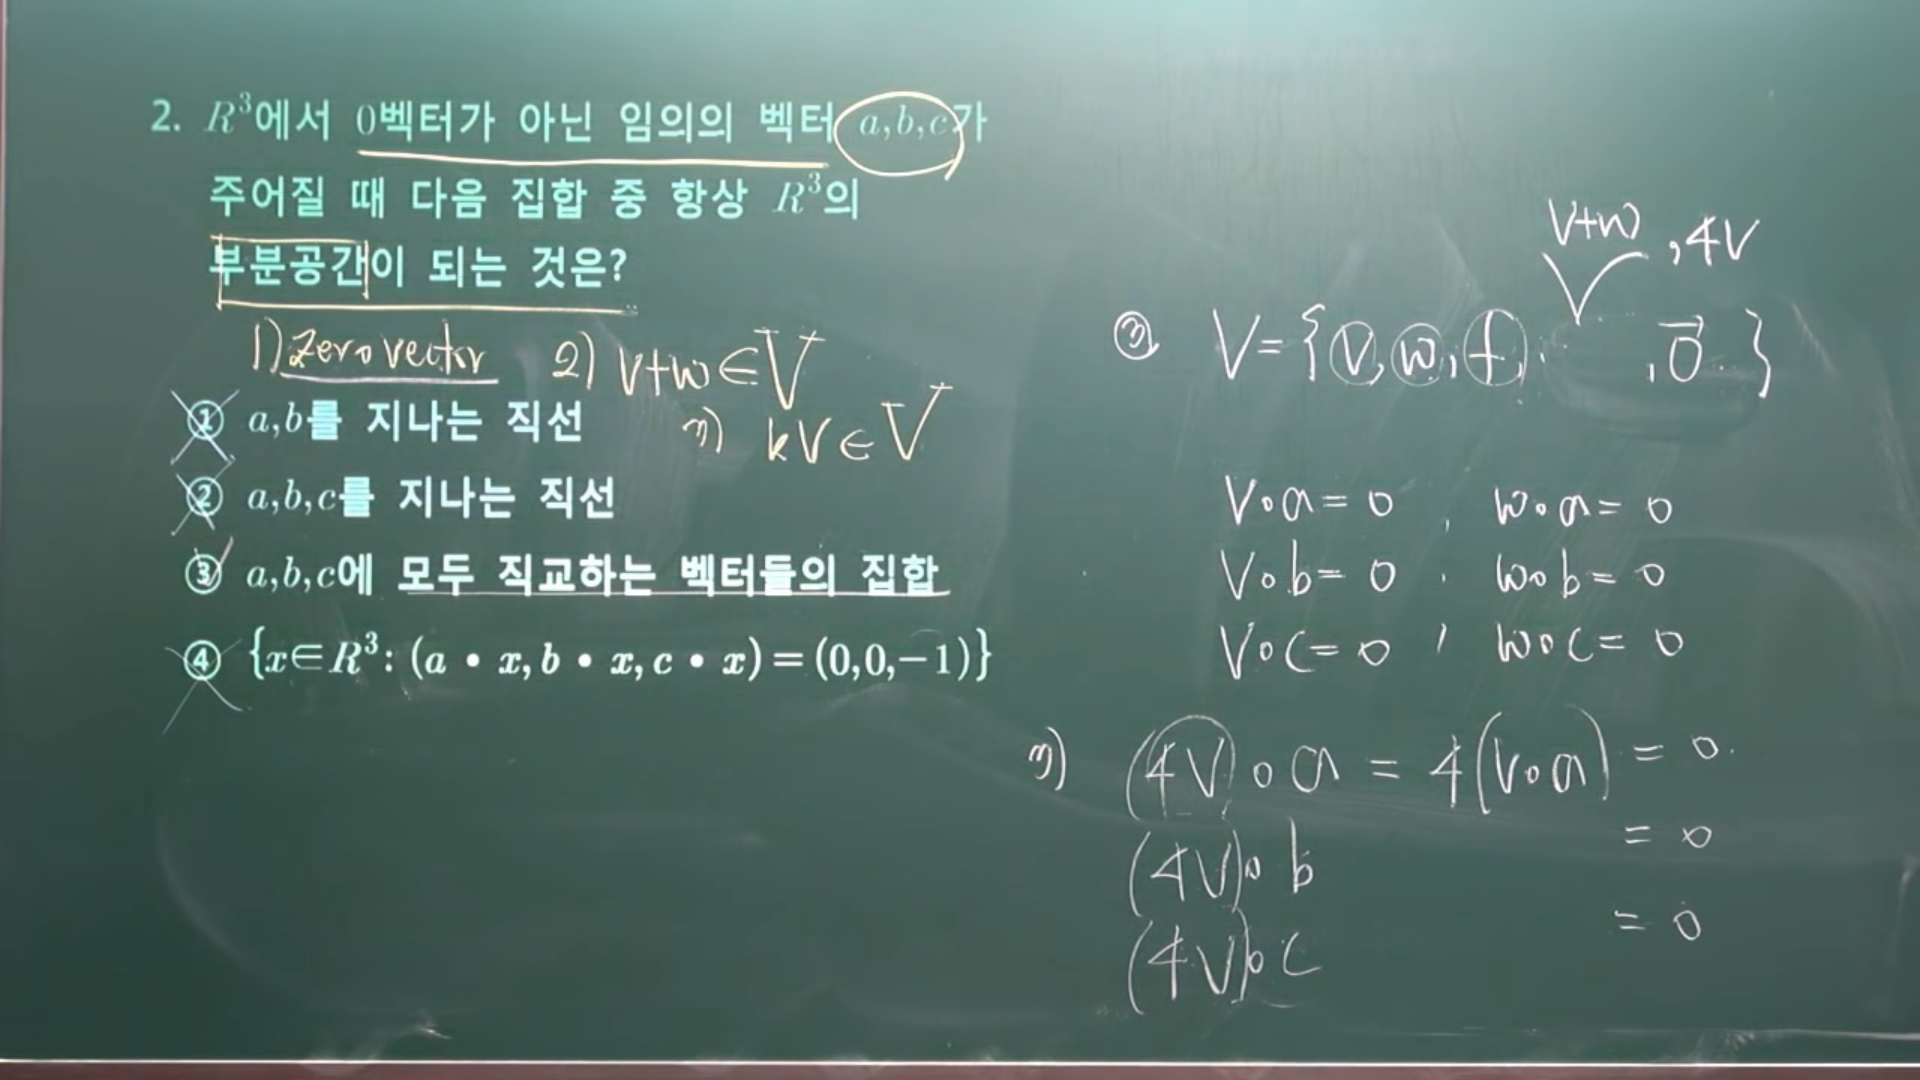 2. R³에서 0벡터가 아닌 임의의 벡터 a,b,c가
주어질 때 다음 집합 중 항상 R³의
부분공간이 되는 것은?
1) Zero vector 2) V+W∈V
3) kV∈V
① a,b를 지나는 직선
② a,b,c를 지나는 직선
③ a,b,c에 모두 직교하는 벡터들의 집합
④ {x∈R³: (a • x, b • x, c • x) = (0,0,−1)}
V+W, 4V
③ V={V, W, f, · , 0⃗ }
V∘a=0 , W∘a=0
V∘b=0 , W∘b=0
V∘c=0 , W∘c=0
3) (4V)∘a = 4(V∘a) = 0.
(4V)∘b = 0
(4V)∘c = 0